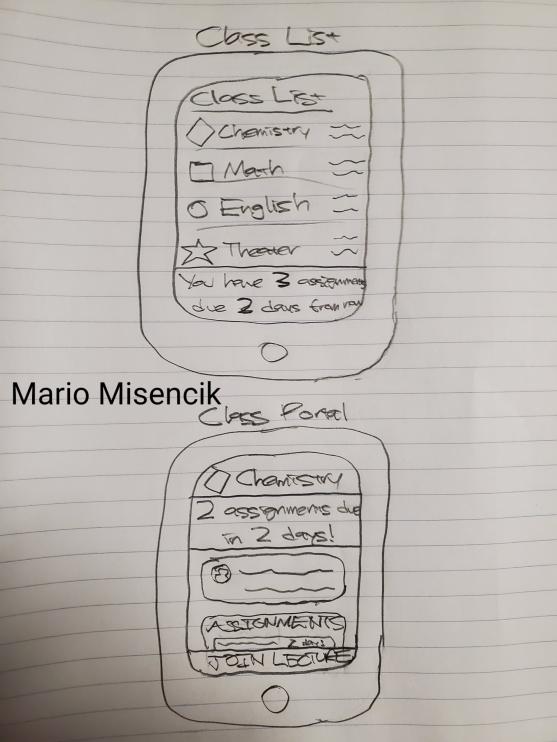 Class List
Class List
Chemistry
Math
English
Theater
You have 3 assignments
due 2 days from now
Mario Misencik
Class Portal
Chemistry
2 assignments due
in 2 days!
ASSIGNMENTS
2 days
JOIN LECTURE